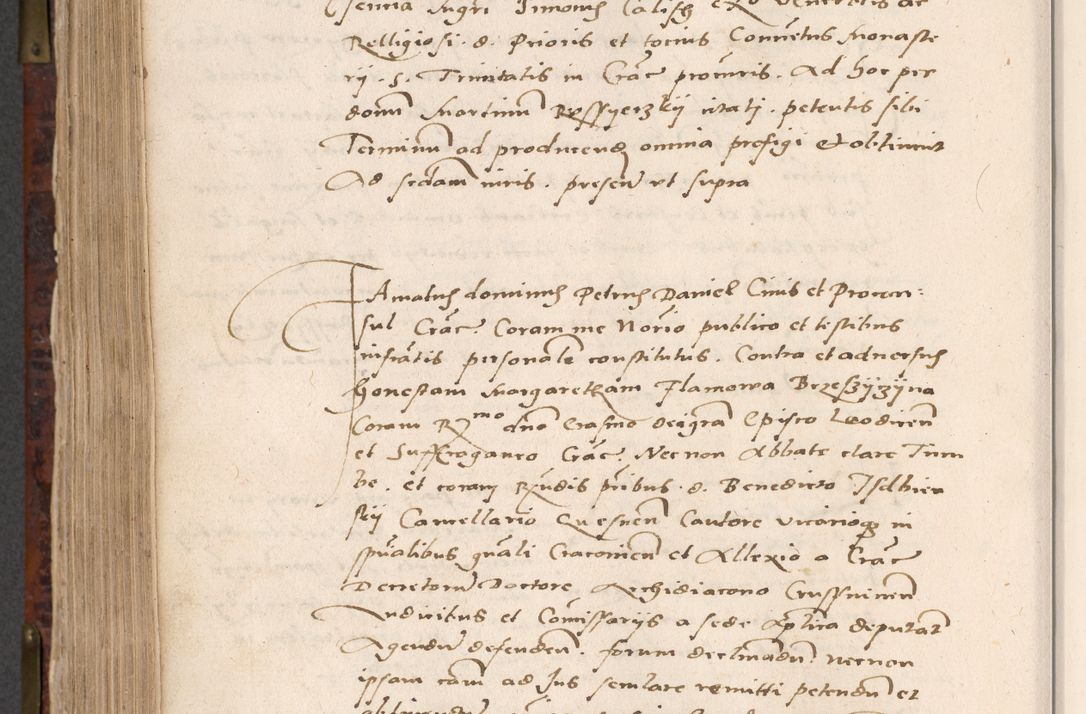 Relligiosi d. Prioris et totius Conventus Monaste
rii S. Trinitatis in Crac procuris. Ad hoc per
donum Martinum citati petentis sibi
Terminum ad producend omnia prefigi et obtinuit
Ad sedam iuris. presen ut supra
Famatus dominus Petrus Daniel Civis et Procon:
sul Crac Coram me Notario publico et testibus
infratis personale constitutus. Contra et adversus
honestam Margaretham Flamowa
Coram Rmo dno Erasmo dei gra Episco Laodicen
et Suffraganeo Crac. Nec non Abbate clare Tum
be. et coram Rndis pribus d. Benedicto Isdbien
skii Cancellario Gnesnen Cantore vicarioq in
spualibus gnali Cracovien et Allexio a Crac
Decretorum Doctore Archidiacono Crussvicien
Iudicibus et Comissariis a sede aplica deputat
Agendum defendend. forum declinand necnon
ipsam cam ad Ius seculare remitti petendum et